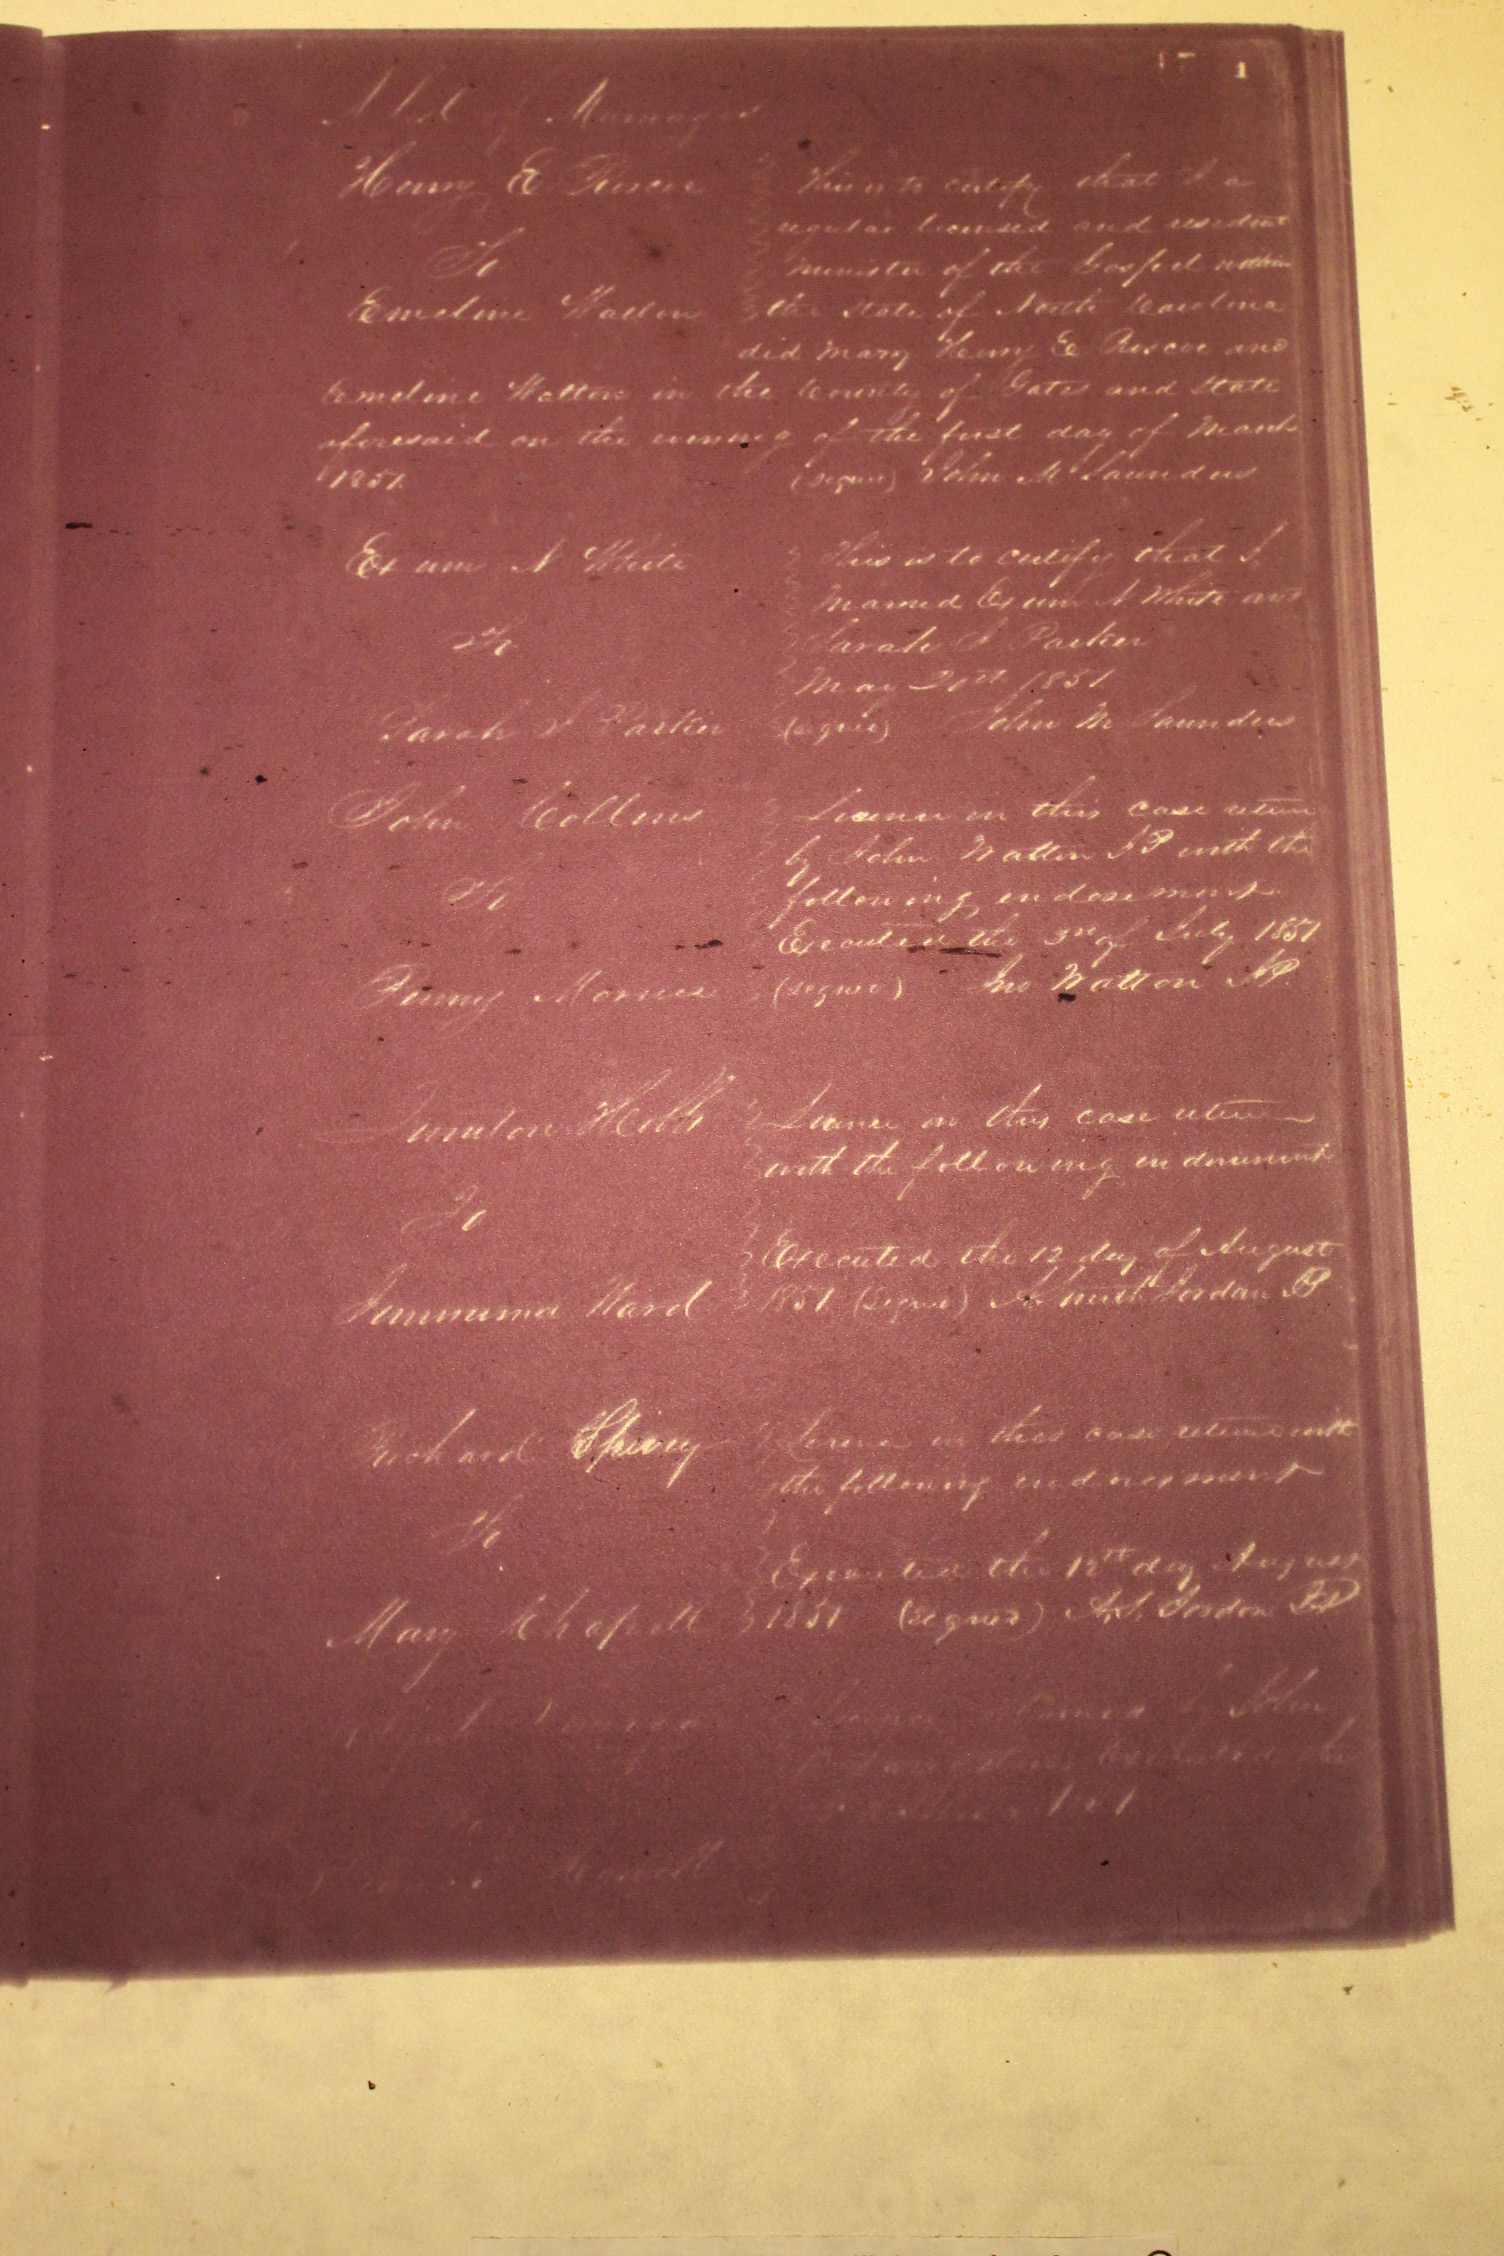 1
A list of Marriages
Henry E Roscoe
To
Emeline Walton
This is to certify that I a
regular licensed and resident
minister of the Gospel within
the state of North Carolina
did mary Henry E Roscoe and
Emeline Walton in the County of Gates and state
aforesaid on the evening of the first day of March
1851. (signed) John M Saunders
Exum N White
To
Sarah J Parker
This is to certify that I
married Exum N White and
Sarah J Parker
May 20th 1851
(signed) John M Saunders
John Collins
To
Penny
Licence in this case return
by John Walton JP with the
following endorsement
Executed the 3rd of July 1851
(signed) Jno Walton JP
Hobbs
To
Jummima Ward
Licence in this case return
with the following endorsement
Executed the 12 day of August
1851 (signed) Jordan JP
Richard Spivey
To
Mary Chapell
Licence in this case return with
the following endorsement
Executed the 12th day August
1851 (signed) A.S. Jordon JP
Licence returned by John
Executed the
1851